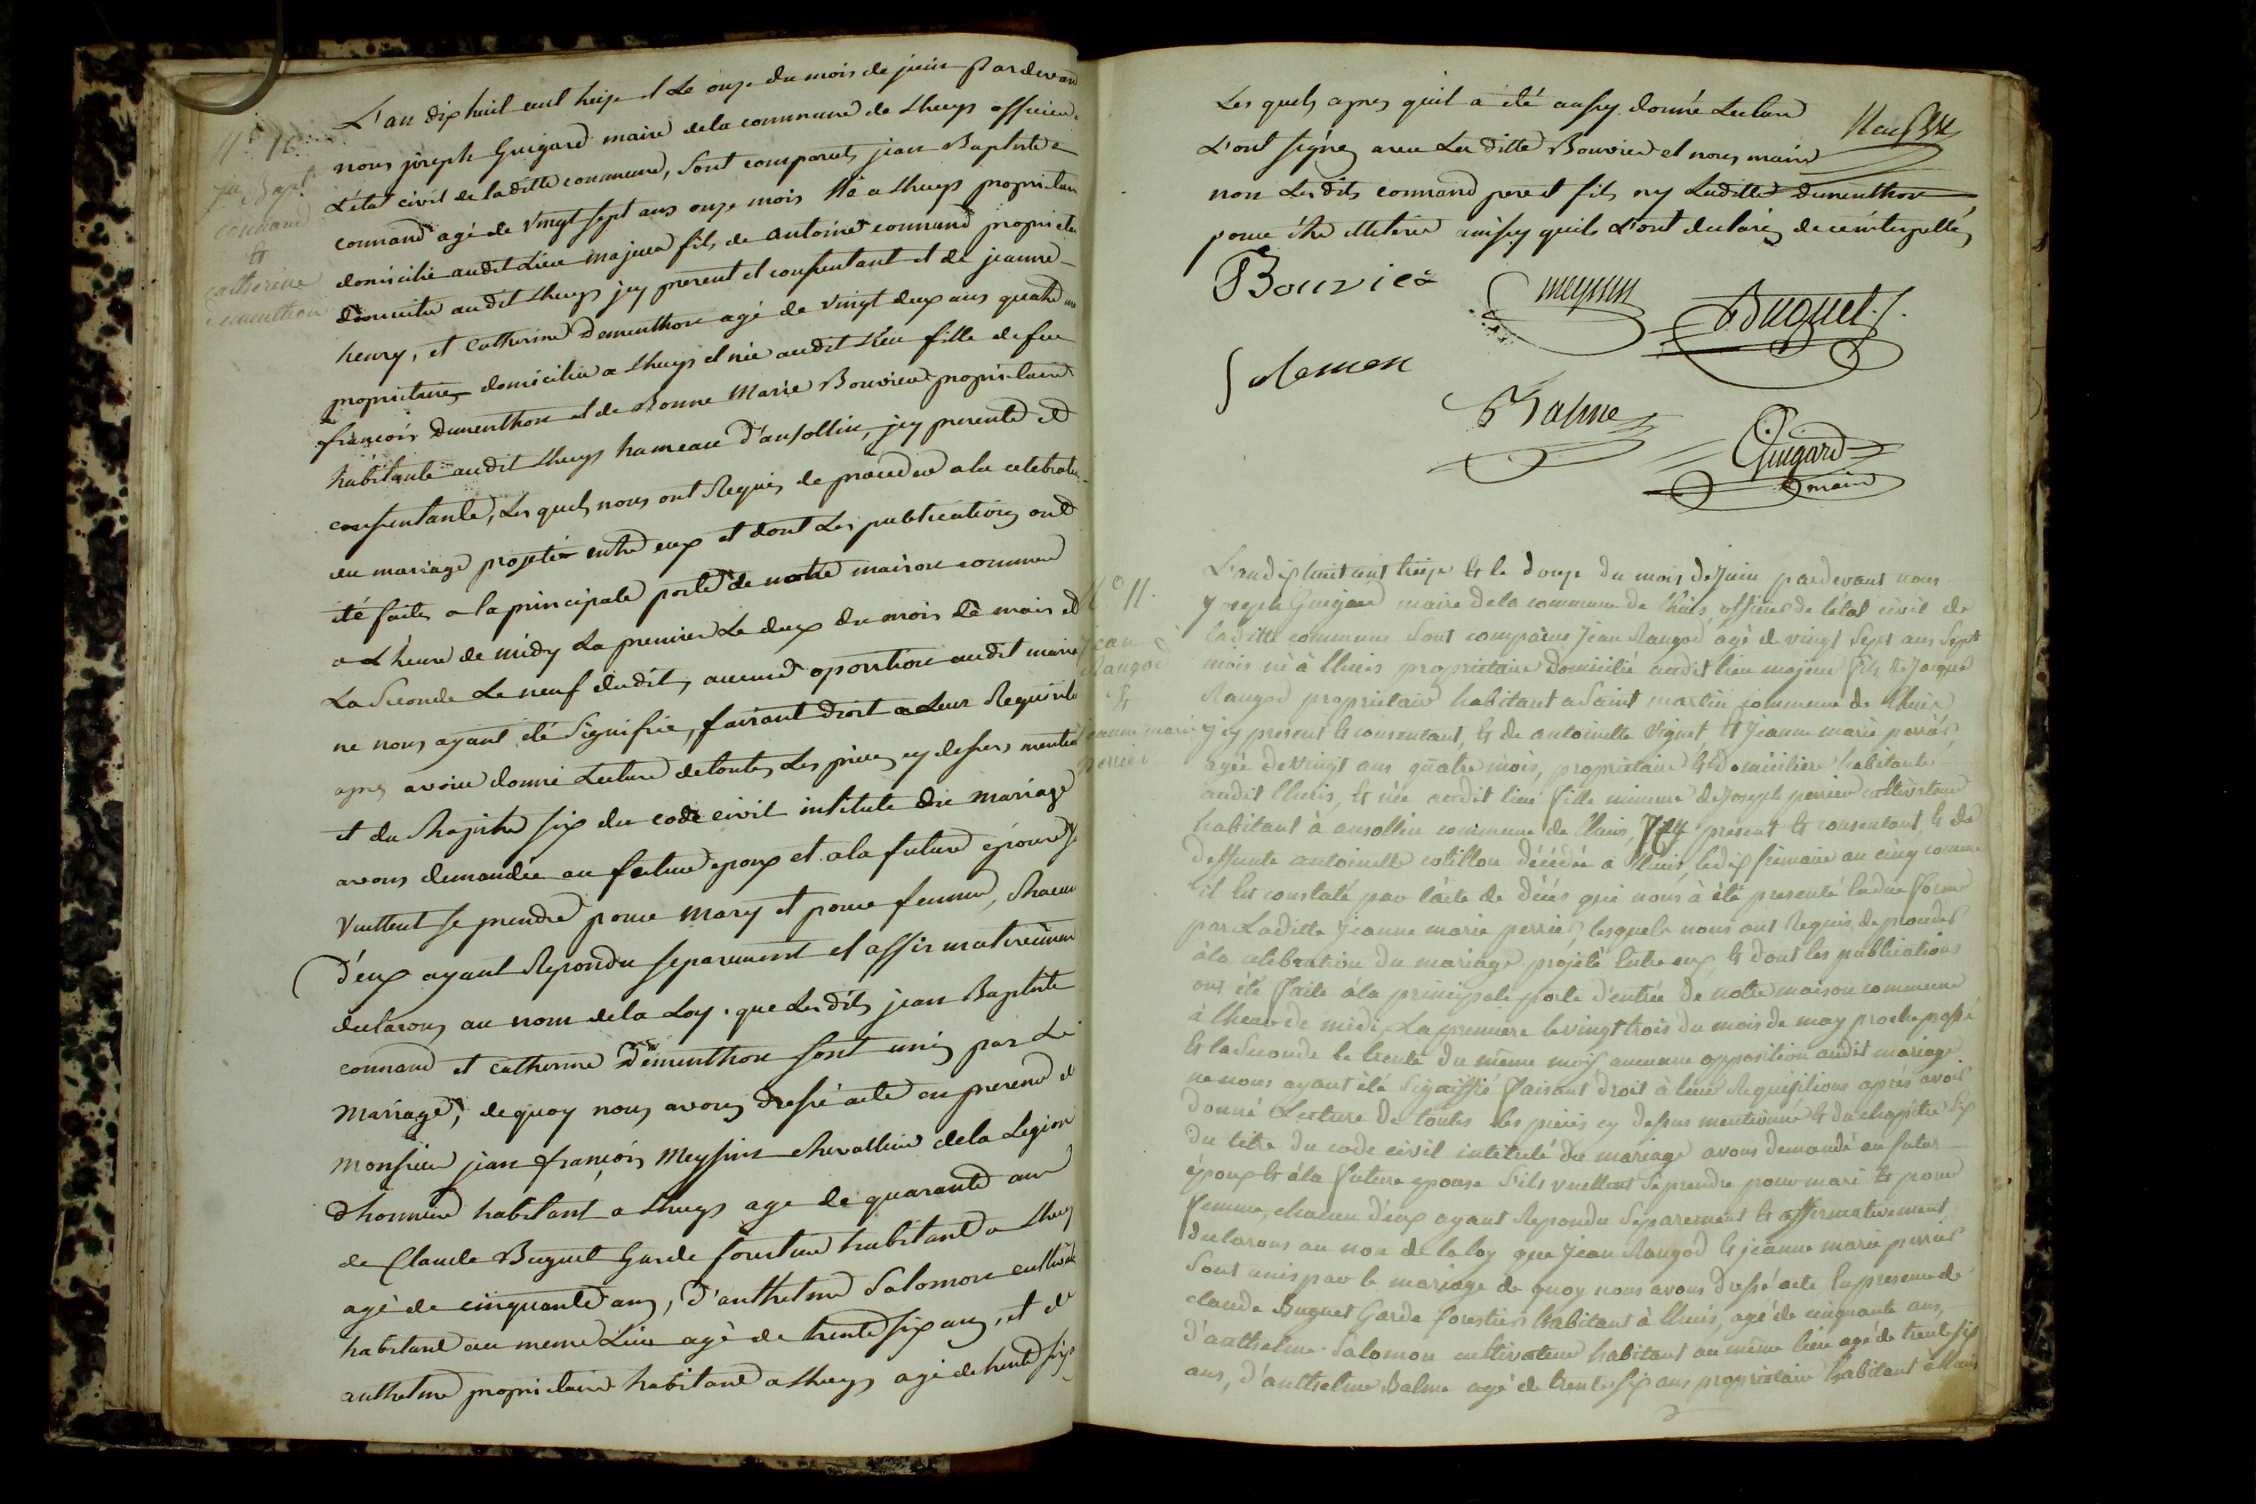 N° 10
jn Bapt
connand
&
catherine
dementhon
L'an dix huit cent treize et Le onze du mois de juin Pardevant
nous joseph Guigard maire de la commune de Lhuys officier de
L'état civil de la ditte commune, sont comparuts jean Baptiste
connand agé de vingt sept ans onze mois né a Lhuys propriétaire
domicilié audit Lieu majeur fils de antoine connand propriétaire
domicilié audit Lhuys jcy present et consentant et de jeanne
henry, et Catherine Dementhon agé de vingt deux ans quatre mois
propriétaire domiciliée a Lhuys et née audit Lieu fille de feu
françois Dementhon et de Bonne Marie Bouvier propriétaire
habitante audit Lhuys hameau d'ansollin, jcy presente et
consentante, Les quels nous ont Requis de procéder a la celebration
du mariage projetté entre eux et dont Les publications ont
été faites a la principale porte de notre maison commune
a L'heure de midy La premier Le deux du mois de mais et
La Seconde Le neuf dudit, aucune oposition audit mariage
ne nous ayant été Signifiée, faisant droit a Leur Requisition
apres avoir donné Lecture de toutes Les pieces cy dessus mentionnées
et du Chapitre six du code civil intitulé du Mariage
avons demandée au future epoux et a la future épouse s'il
veullent se prendre pour Mary et pour femme, Chacun
D'eux ayant Repondu separement et affirmativement
declarons au nom de la Loy, que Les dits jean Baptiste
connand et catherine Dementhon sont unis par Le
Mariage, de quoy nous avons dressé acte en presence de
Monsieur jean françois Meyssin chevallier de la Legion
d'honneur habitant a Lhuys age de quarante ans
de Claude Buguet Garde forestier habitant a Lhuys
agé de cinquante ans, D'anthelme Salomon cultivateur
habitant au meme Lieu agé de trente six ans, et de
anthelme propriétaire habitant a Lhuys agé de trente six
Les quels apres qu'il a été aussy donné Lecture
L'ont signé avec La ditte Bouvier et nous maire
non Les dits connand pere et fils ny Laditte dementhon
pour être illeterés ainsy qu'ils L'ont declarés de ce interpellés
Bouvier
meyssin
Buguet
Solemon
Balme
Guigard
maire
N° 11.
jean
Rangod
&
jeanne marie
perrier
L'an dix huit cent treize & le douze du mois de Juin pardevant nous
Joseph Guigard maire de la commune de Lhuis, officier de l'état civil de
ladite commune sont comparus Jean Rangod agé de vingt sept ans sept
mois né à Lhuis propriétaire domicilié audit lieu majeur fils de Jacque
Rangod propriétaire habitant a Saint martin commune de Lhuis
jcy present & consentant, & de antoinette Viguet & Jeanne marie perrier
agée de vingt ans quatre mois, propriétaire & domiciliée habitante
audit Lhuis, & née audit lieu fille mineure de Joseph perrier cultivateur
habitant à ansollin commune de Lhuis, jcy present & consentant, & de
deffunte antoinette cotillon décédée à Lhuis, le dix frimaire an cinq comme
il est constaté par l'acte de décés qui nous à été presenté en due forme
par Laditte Jeanne marie perrier, lesquels nous ont Requis de proceder
à la celebration du mariage projeté Entre eux, & dont les publications
ont été faite à la principale porte d'entrée de notre maison commune
à lheure de midi, La premiere le vingt trois du mois de may proche passé
& la Seconde le trente du même mois aucune opposition audit mariage
ne nous ayant été signiffié faisant droit à leur Requisitions après avoir
donné Lecture de toutes les pieces cy dessus mentionné & du chapitre six
du titre du code civil intitulé du mariage avons demandé au futur
époux & à la future epouse S'ils veullent se prendre pour mari & pour
femme, chacun d'eux ayant Repondu Separement & affirmativement
declarons au nom de la loy que Jean Rangod & jeanne marie perrier
Sont unis par le mariage de quoy nous avons dressé acte En presence de
claude Buguet Garde forestier habitant à Lhuis, agé de cinquante ans,
d'anthelme Salomon cultivateur habitant au même lieu agé de trente six
ans, d'anthelme Balme agé de trente six ans propriétaire habitant à Lhuis